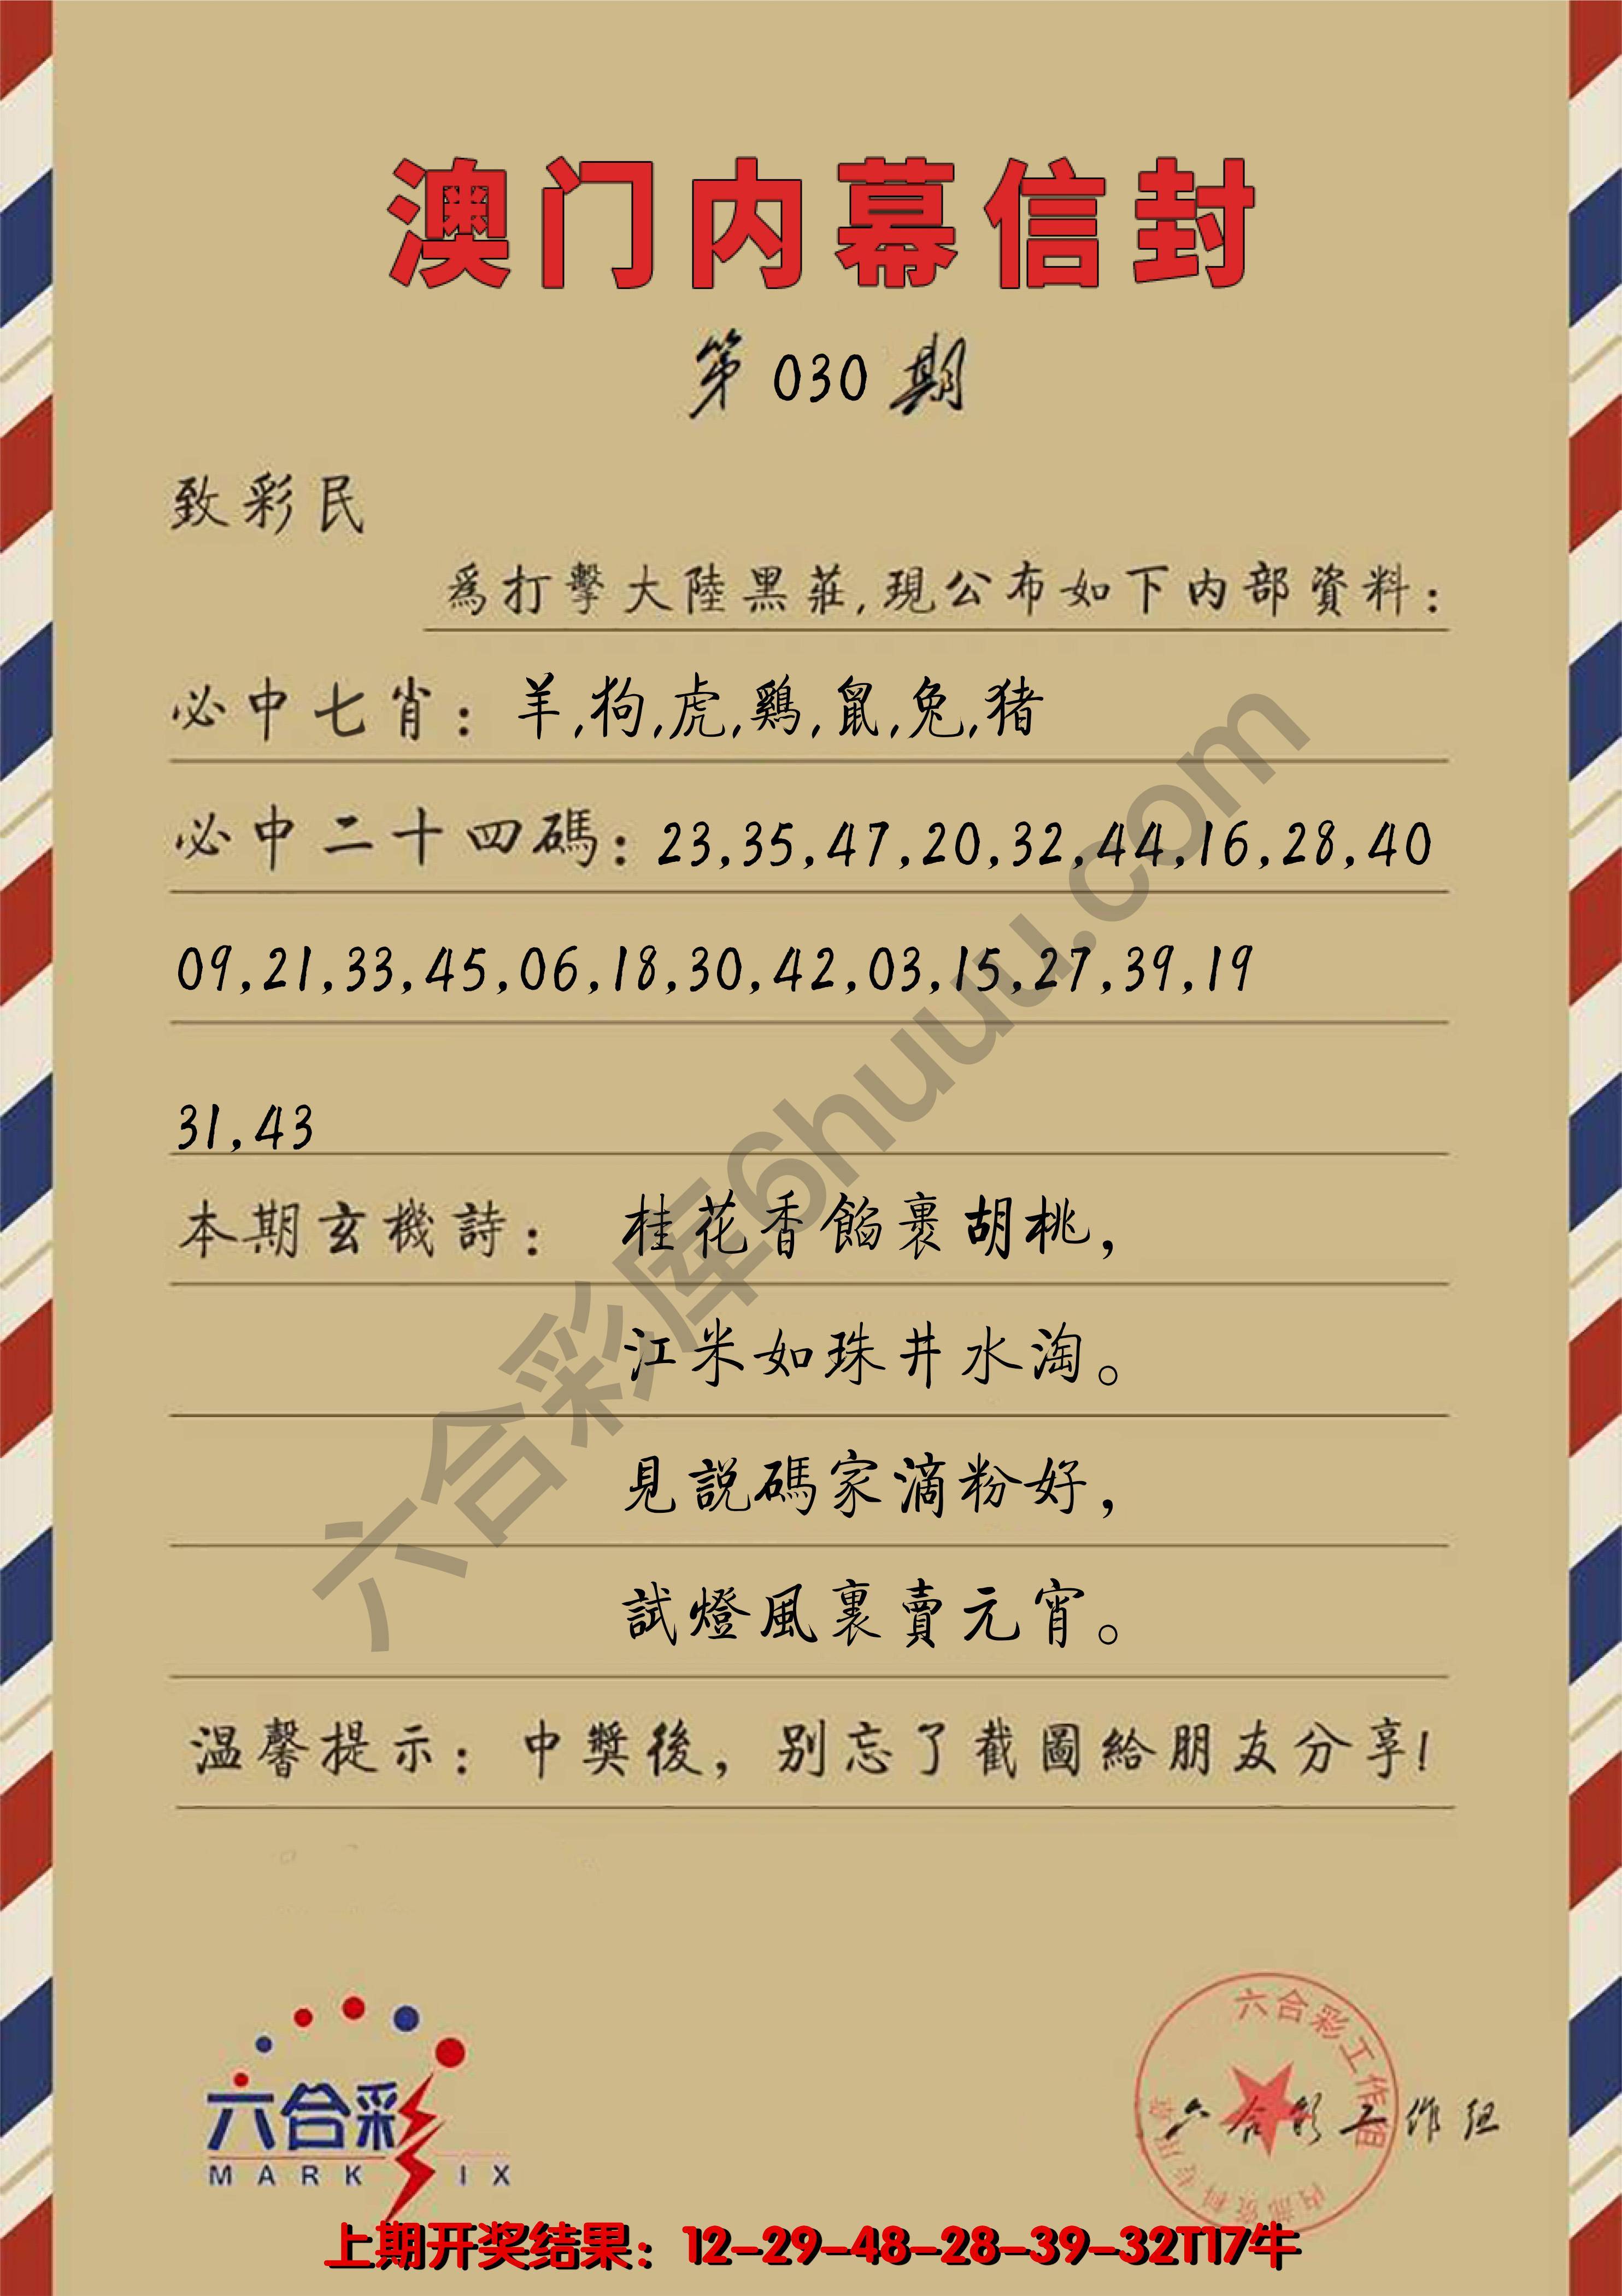 澳门内幕信封
第030期
致彩民
為打擊大陸黑莊,現公布如下内部資料:
必中七肖: 羊,狗,虎,鷄,鼠,兔,猪
必中二十四碼: 23,35,47,20,32,44,16,28,40
09,21,33,45,06,18,30,42,03,15,27,39,19
31,43
本期玄機詩: 桂花香餡裹胡桃,
江米如珠井水淘。
見説碼家滴粉好,
試燈風裏賣元宵。
温馨提示: 中獎後, 别忘了截圖給朋友分享!
六合彩库6huuu.com
六合彩
MARK IX
六合彩工作组
内部资料专用章
六合彩工作组
上期开奖结果: 12-29-48-28-39-32T17牛